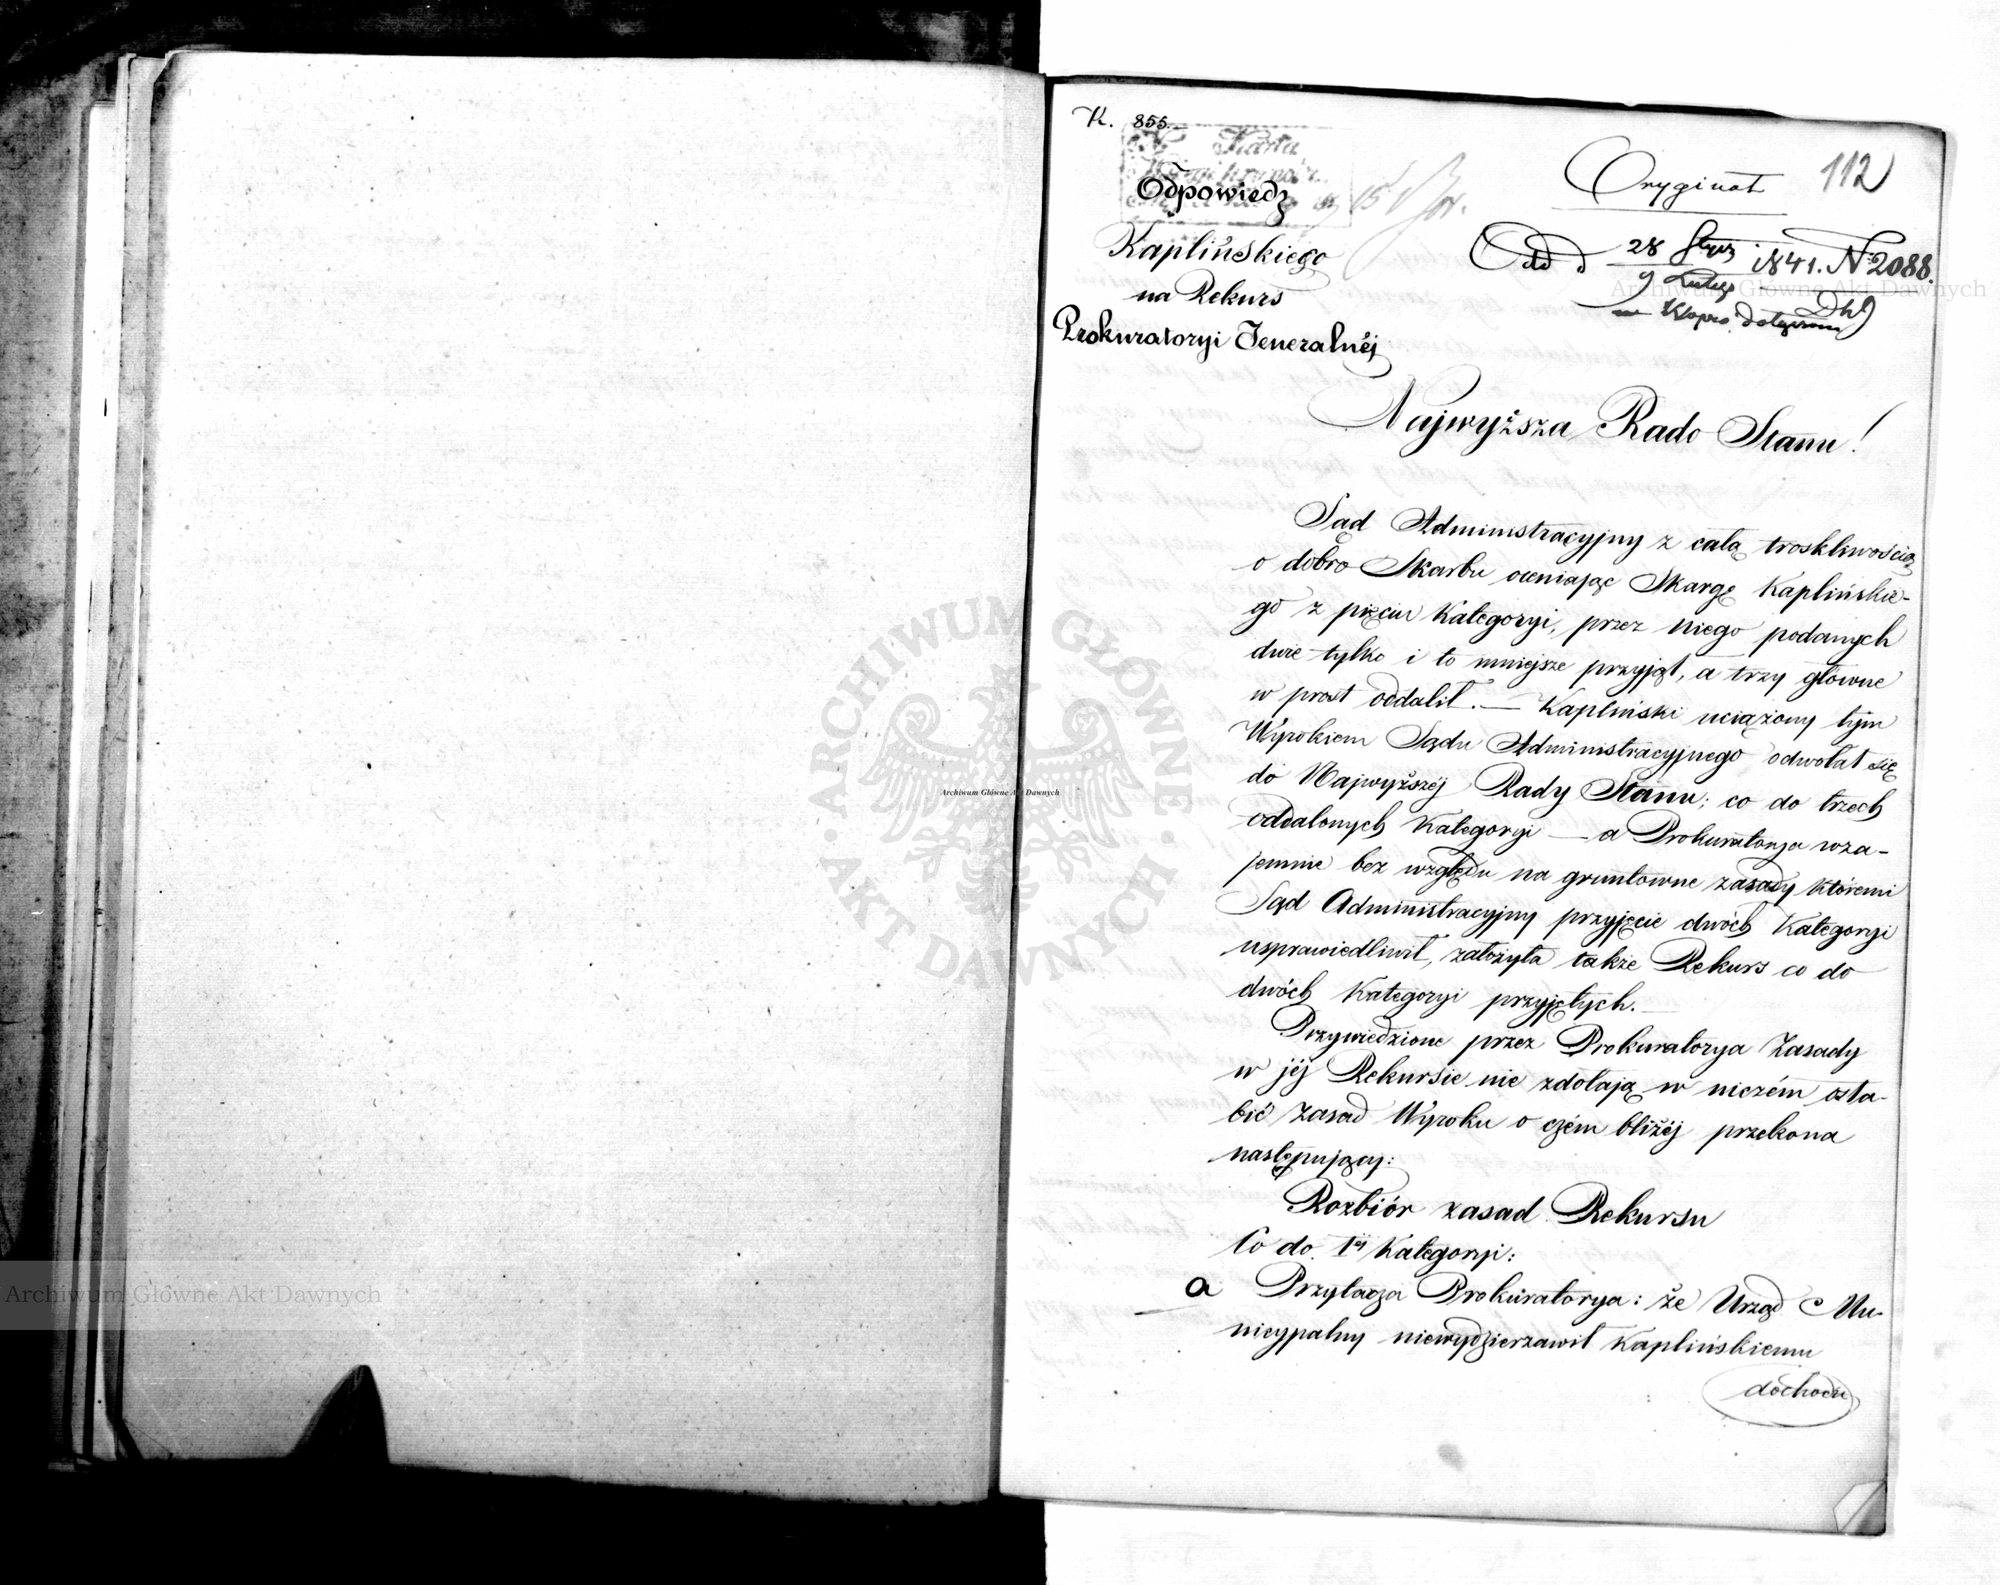 K. 855.
112
Oryginał
Odpowiedz
Kaplińskiego
na Rekurs
Prokuratoryi Jeneralnéj
Odd d 28 Stycz 1841. N 2088.
9 Lutego
Najwyższa Rado Stanu!
Sąd Administracyjny z całą troskliwością
o dobro Skarbu oceniając Skargę Kaplińskie-
go z pięciu Kategoryi, przez niego podanych
dwie tylko i to mniejsze przyjął, a trzy główne
w prost oddalił. — Kapliński uciążony tym
Wyrokiem Sądu Administracyjnego odwołał się
do Najwyższéj Rady Stanu; co do trzech
oddalonych Kategoryi — a Prokuratorya wza-
jemnie bez względu na gruntowne zasady któremi
Sąd Administracyjny przyjęcie dwóch Kategoryi
usprawiedliwił, założyła także Rekurs co do
dwóch Kategoryi przyjętych. —
Przywiedzione przez Prokuratorya Zasady
w jéj Rekursie nie zdołają w niczém osła-
bić Zasad Wyroku o czém bliżéj przekona
następujący:
Rozbiór zasad Rekursu
Co do 1éj Kategoryi:
a Przytacza Prokuratorya: że Urząd Mu-
nicypalny niewydzierzawił Kaplińskiemu
dochodu
Archiwum Główne Akt Dawnych
Archiwum Główne Akt Dawnych
Archiwum Główne Akt Dawnych
ARCHIWUM GŁÓWNE
AKT DAWNYCH